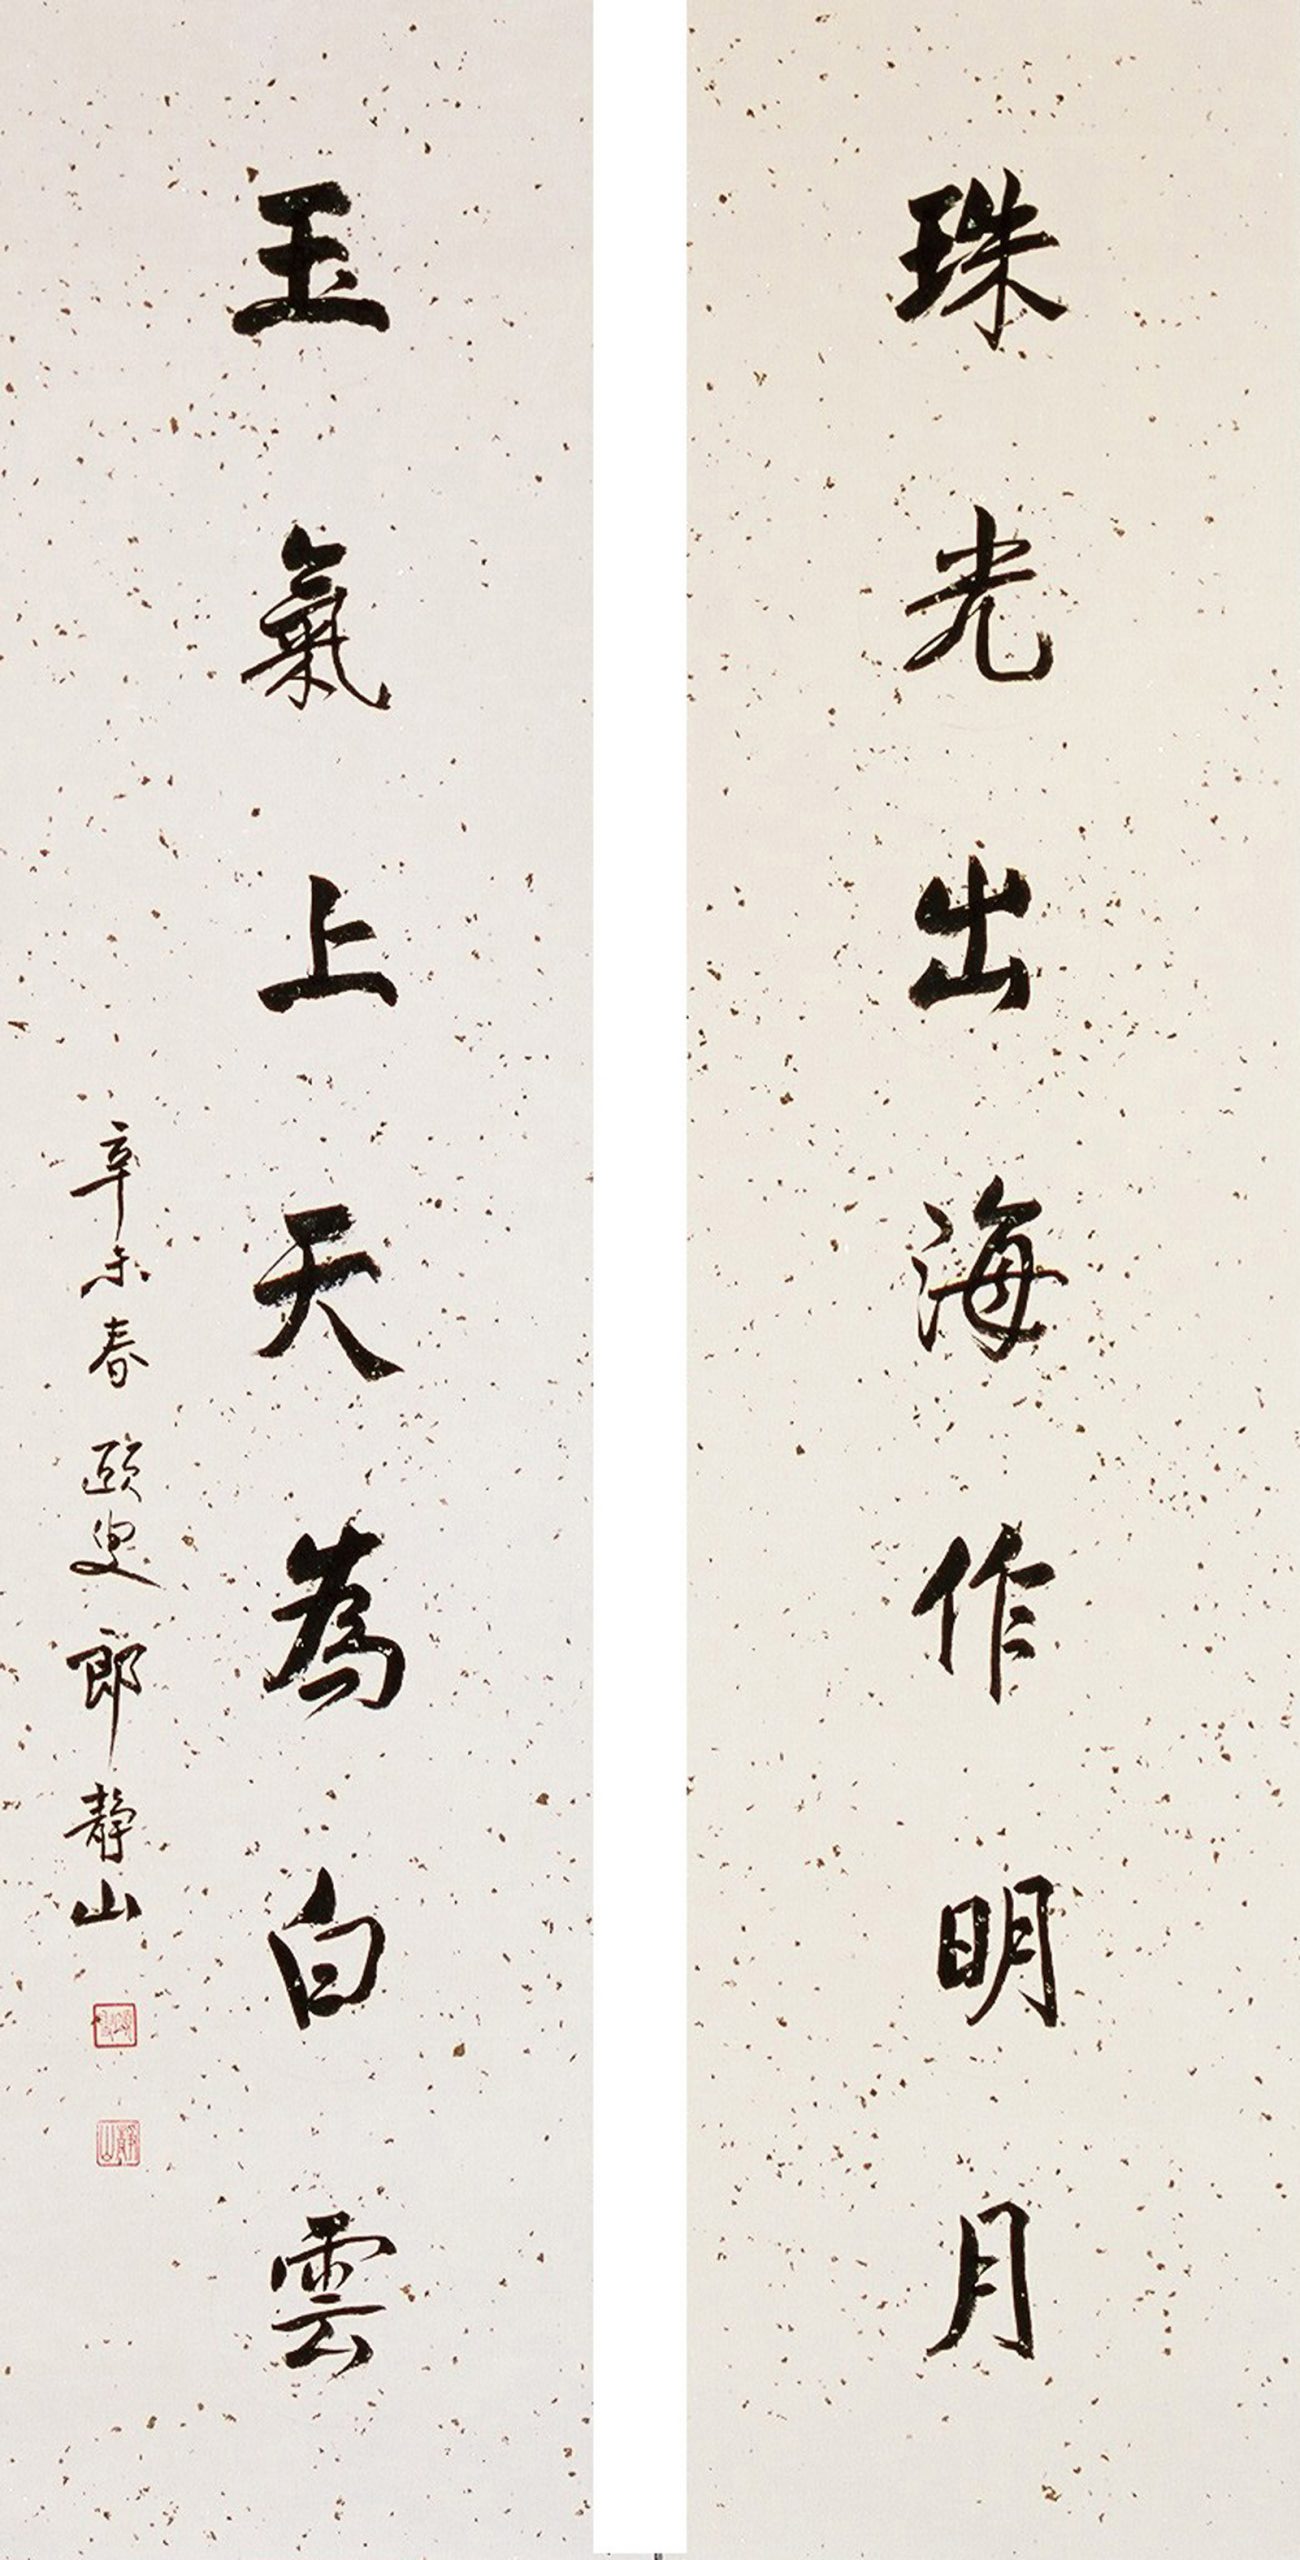 珠光出海作明月
玉氣上天為白雲
辛未春 頤叟 郎靜山
靜山